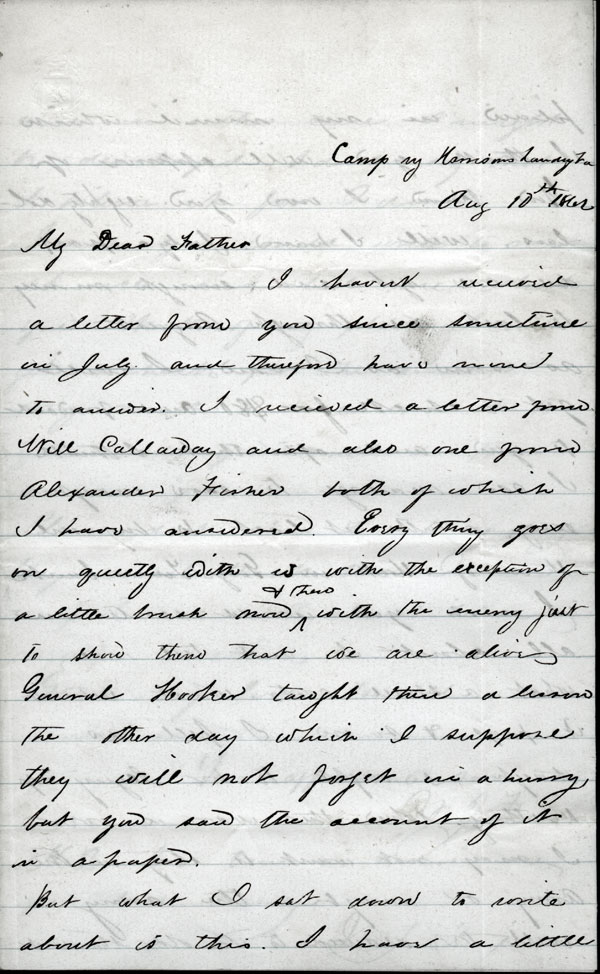 Camp nr Harrisons Landing Va
Aug 10th 1862
My Dear Father
I havent received
a letter from you since sometime
in July. and therefore have none
to answer. I received a letter from
Will Callaway and also one from
Alexander Fisher both of which
I have answered. Every thing goes
on quietly with us with the exception of
a little brush now & then with the enemy just
to show them that we are alive
General Hooker taught them a lesson
the other day which I suppose
they will not forget in a hurry,
but you saw the account of it
in a paper.
But what I sat down to write
about is this. I have a little